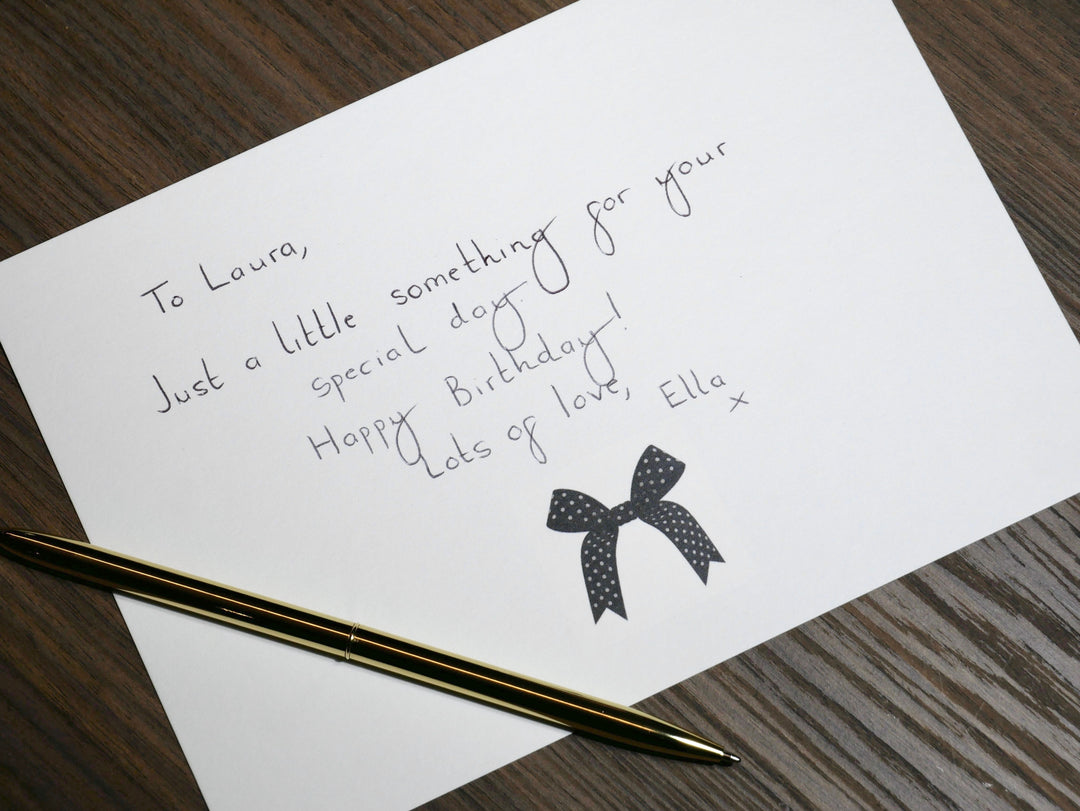 To Laura,
Just a little something for your
special day.
Happy Birthday!
Lots of love, Ella
x